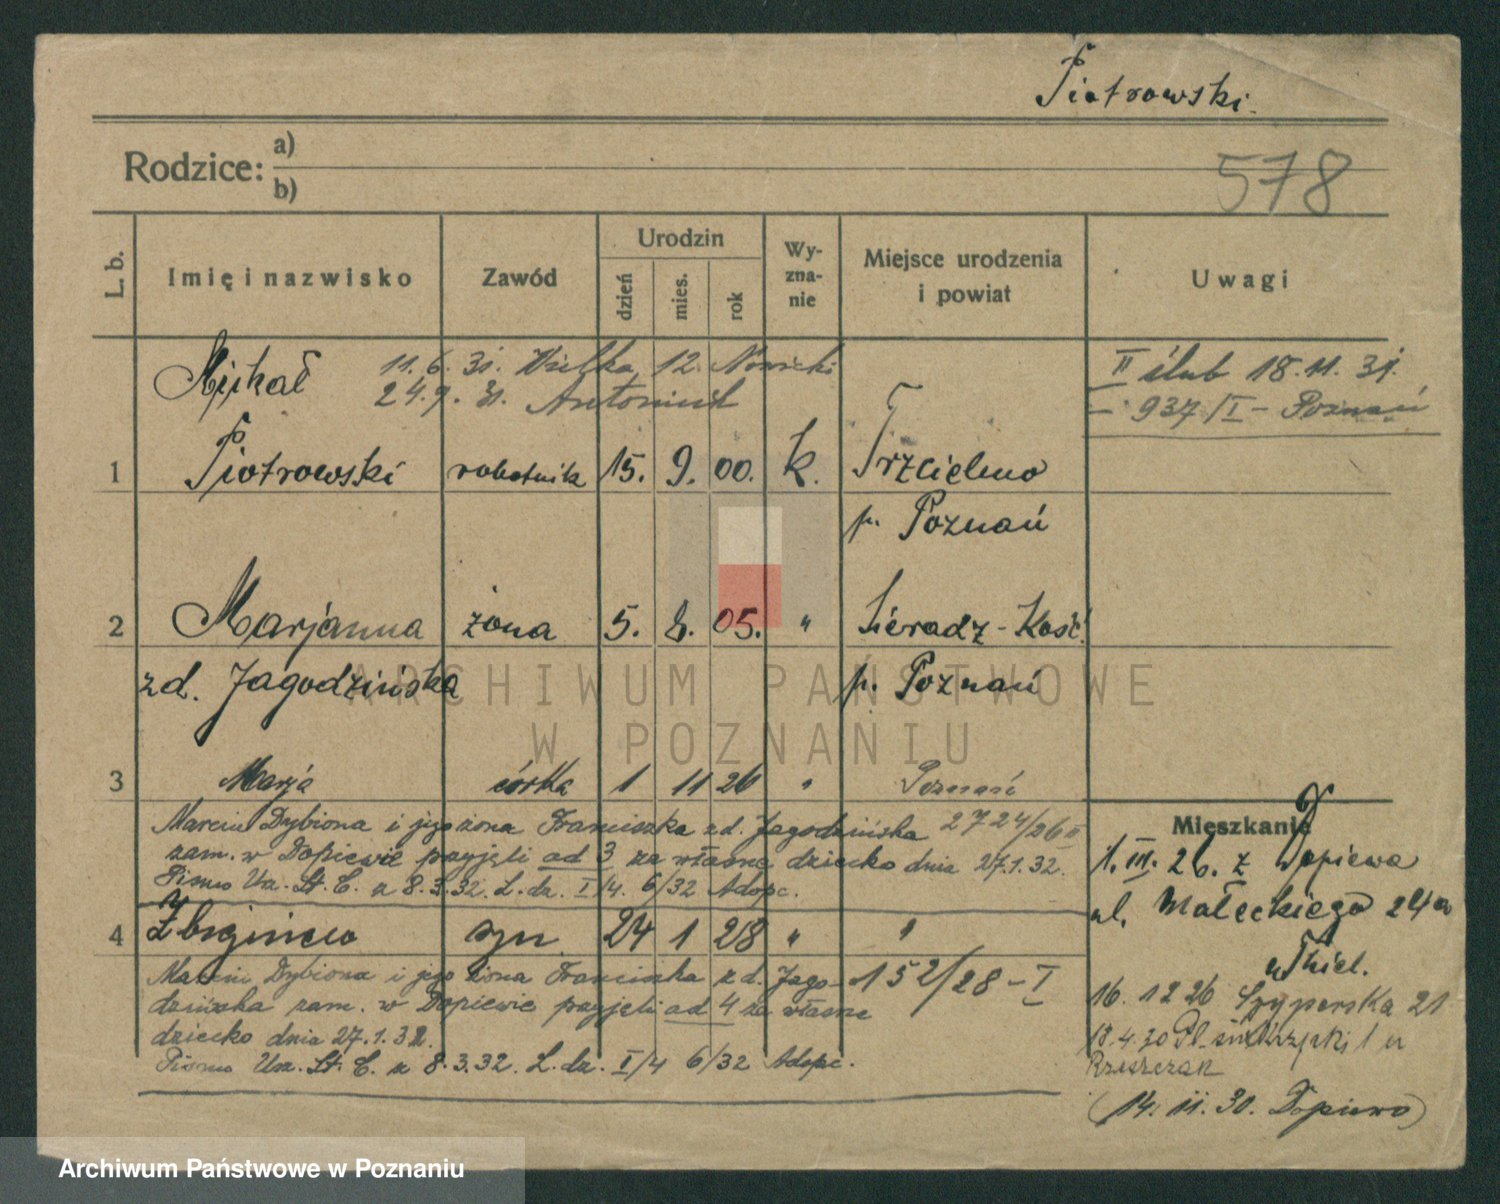 Piotrowski.
Rodzice: a)
b)
578
L. b. Imię i nazwisko Zawód Urodzin dzień mies. rok Wy-zna-nie Miejsce urodzenia i powiat Uwagi
11.6.31. Wielka 12 Nowicki
II ślub 18.11.31.
Michał
24.9.31.
— 937/I — Poznań
1 Piotrowski robotnik 15. 9. 00. k. Trzcielino
p. Poznań
2 Marjanna żona 5. 8. 05. " Sieradz-Kość.
zd. Jagodzińska p. Poznań
3 Marja córka 1 11 26 " Poznań
Marcin Dybiona i jego żona Franciszka zd. Jagodzińska 2724/26 II
zam. w Dopiewie przyjęli ad 3 za własne dziecko dnia 27.1.32.
Pismo Urz. St. C. z 8.3.32. L. dz. I/4. 6/32 Adopc.
4 Zbigniew syn 24 1 28 " "
Marcin Dybiona i jego żona Franciszka zd. Jago- 152/28-I
dzińska zam. w Dopiewie przyjęli ad 4 za własne
dziecko dnia 27.1.32.
Pismo Urz. St. C. z 8.3.32. L. dz. I/4 6/32 Adopc.
Mieszkanie
1. III. 26. z Dopiewa
ul. Małeckiego 24a
u Thiel.
16. 12 26 Szyperska 21
18.4.30 Pl. 1 u
Rzeszczak
(14. 11. 30. Dopiewo)
ARCHIWUM PAŃSTWOWE
W POZNANIU
Archiwum Państwowe w Poznaniu